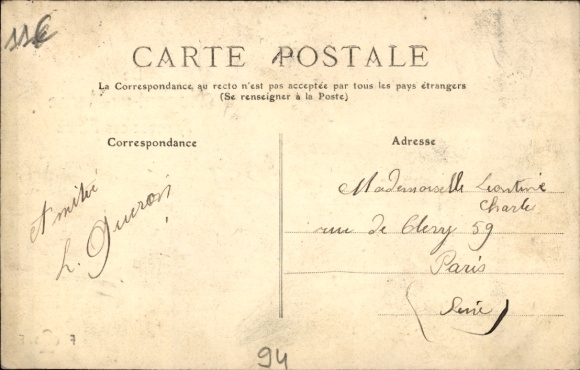 11€
CARTE POSTALE
La Correspondance au recto n'est pas acceptée par tous les pays étrangers
(Se renseigner à la Poste)
Correspondance
Amitié
L.
Adresse
Mademoiselle Leontine
Charle
rue de Clery 59
Paris
(Seine)
94